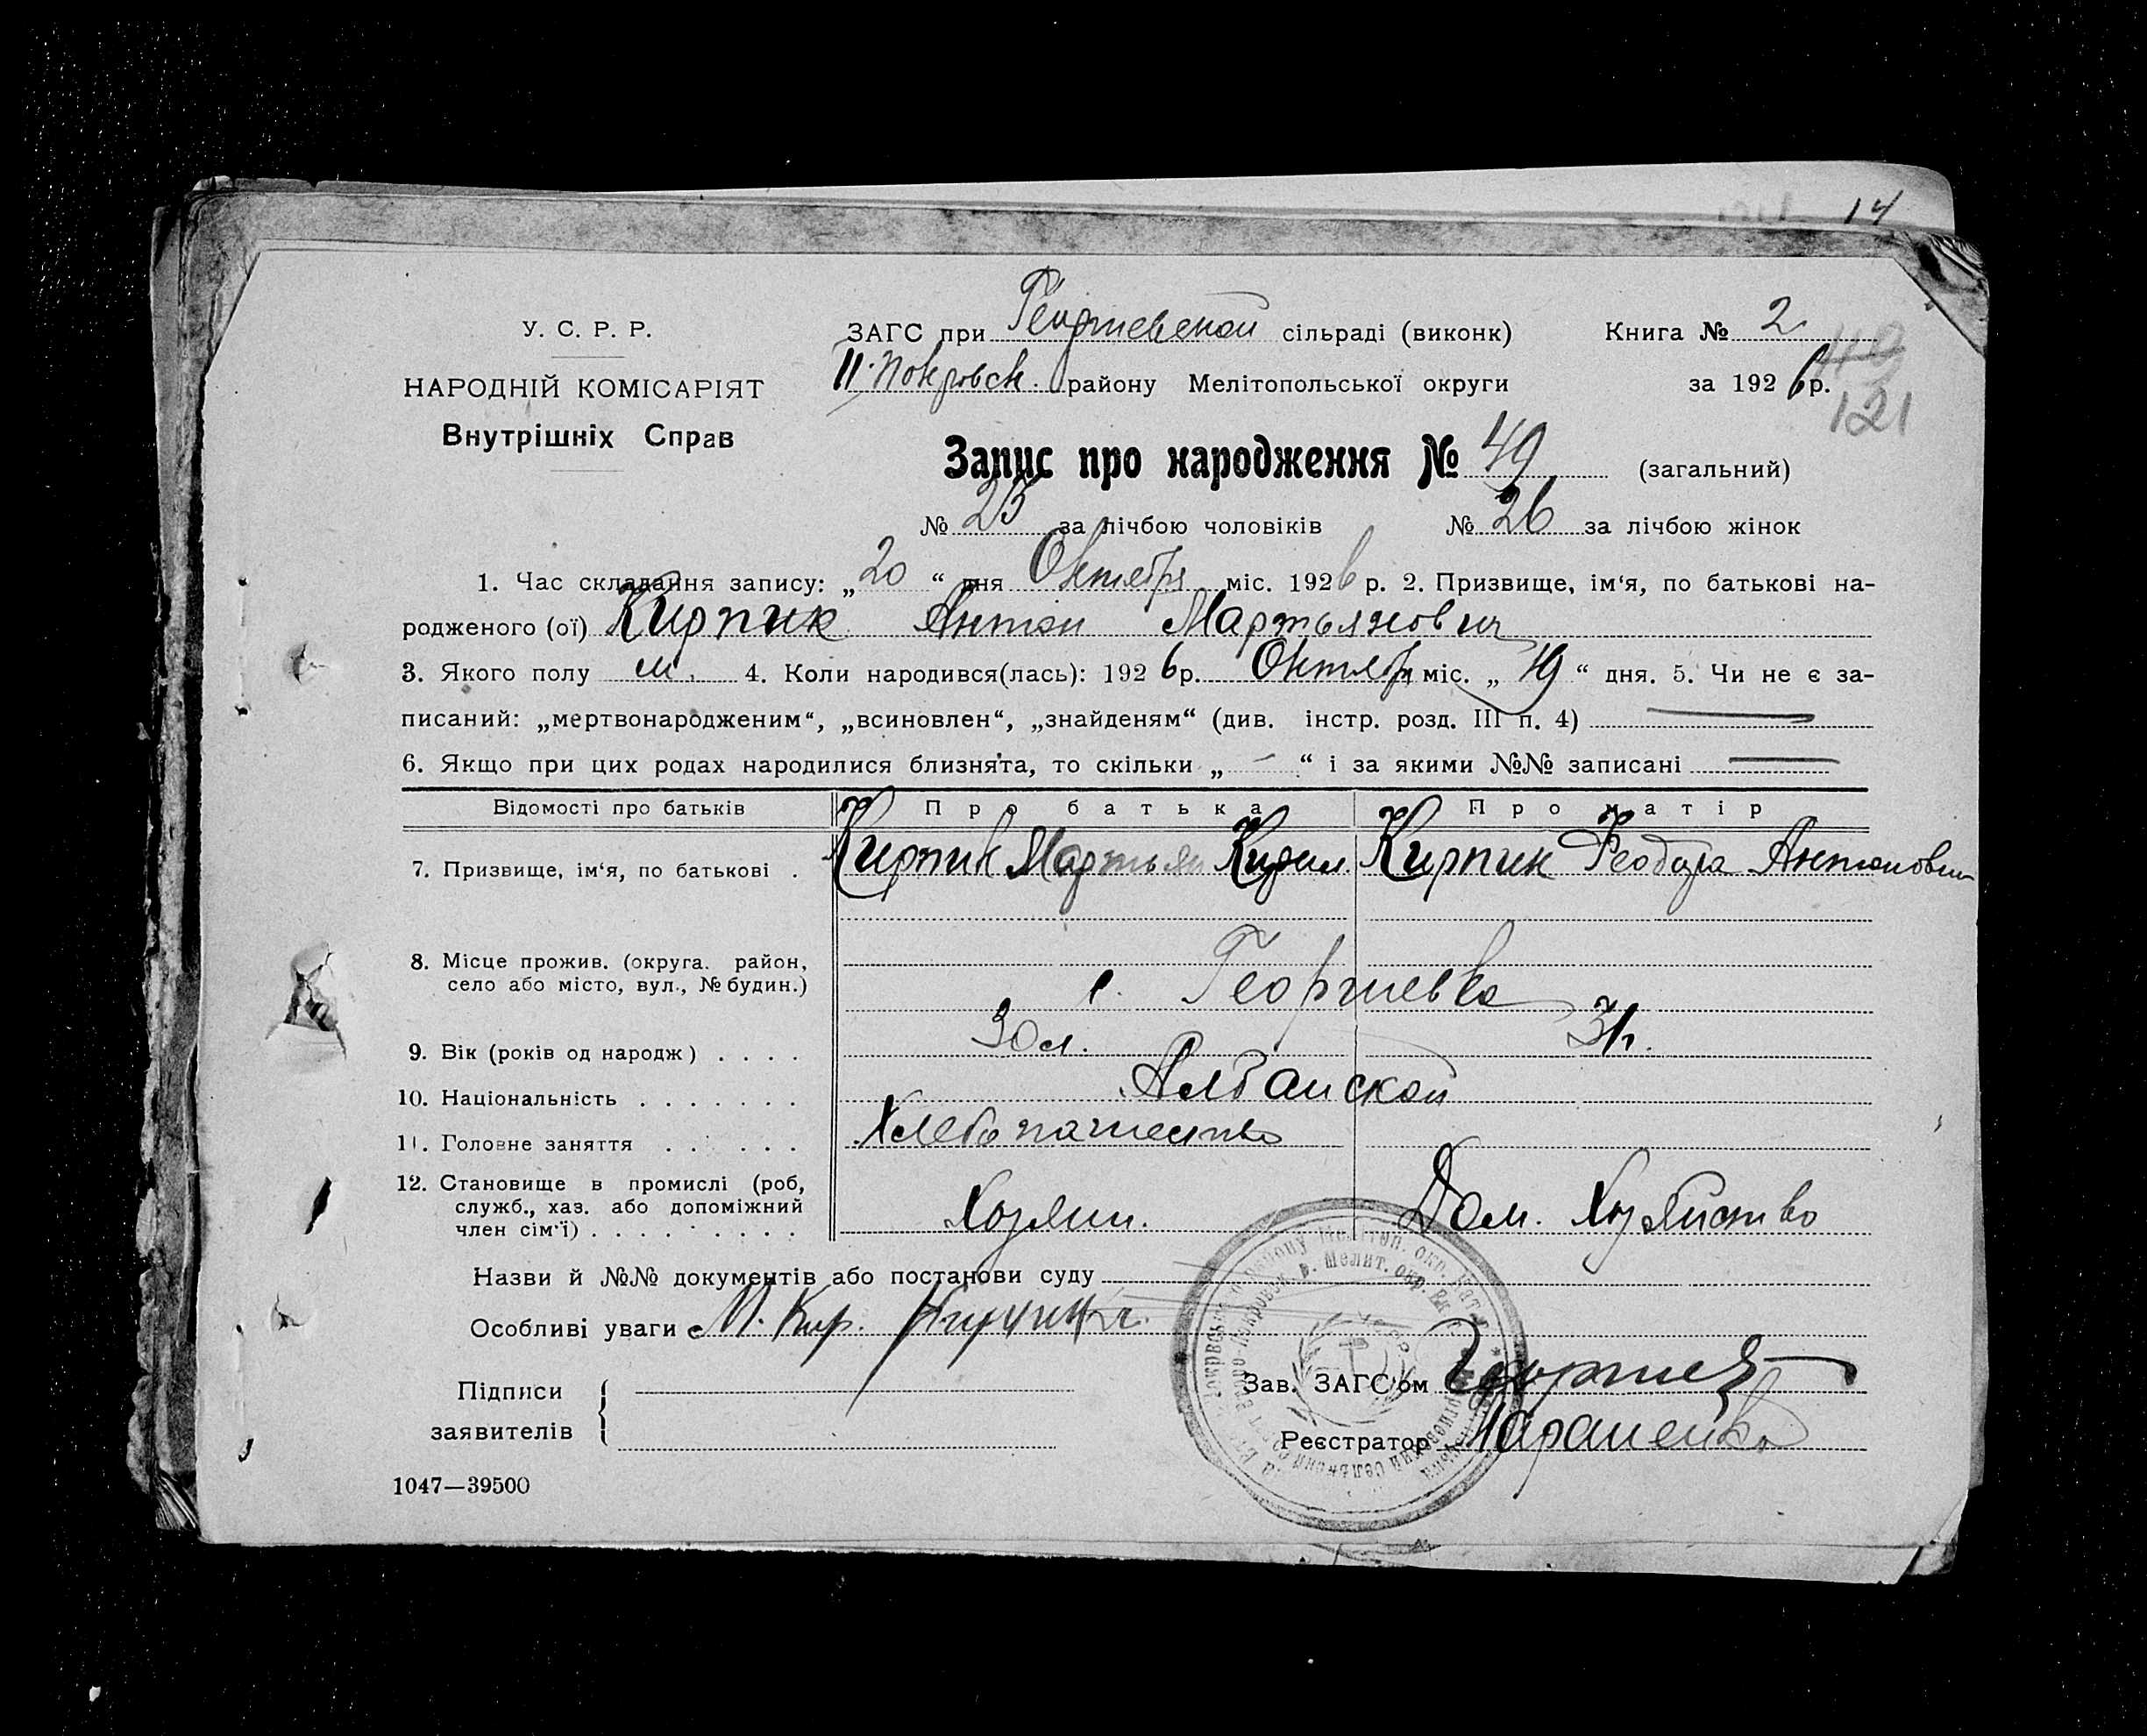 14
У. С. Р. Р.
НАРОДНІЙ КОМІСАРІЯТ
Внутрішніх Справ
ЗАГС при Георгиевской сільраді (виконк)
П. Покровск. району Мелітопольської округи
Книга № 2
за 1926 р.
119
121
Запис про народження № 49 (загальний)
№ 25 за лічбою чоловіків № 26 за лічбою жінок
1. Час складання запису: „20“ дня Октября міс. 1926 р. 2. Призвище, ім‘я, по батькові на-
родженого (ої) Кирпик Антон Мартьянович
3. Якого полу м. 4. Коли народився(лась): 1926 р. Октября міс. „19“ дня. 5. Чи не є за-
писаний: „мертвонародженим“, „всиновлен“, „знайденям“ (див. інстр. розд. III п. 4)
6. Якщо при цих родах народилися близнята, то скільки „ – “ і за якими №№ записані —
Відомості про батьків Про батька Про матір
7. Призвище, ім‘я, по батькові . Кирпик Мартьян Кирил. Кирпик Феодора Антоновн
8. Місце прожив. (округа. район,
село або місто, вул., № будин.) с. Георгиевка
9. Вік (років од народж) . . . . 30 л. 31 г.
10. Національність . . . . . . . Албанской
11. Головне заняття . . . . . . Хлебопашество
12. Становище в промислі (роб,
служб., хаз. або допоміжний
член сім‘ї) . . . . . . . . Хозяин. Дом. Хозяйство
Назви й №№ документів або постанови суду
Особливі уваги М. Кир.
Підписи
заявителів
Зав. ЗАГС‘ом
Реєстратор
1047—39500